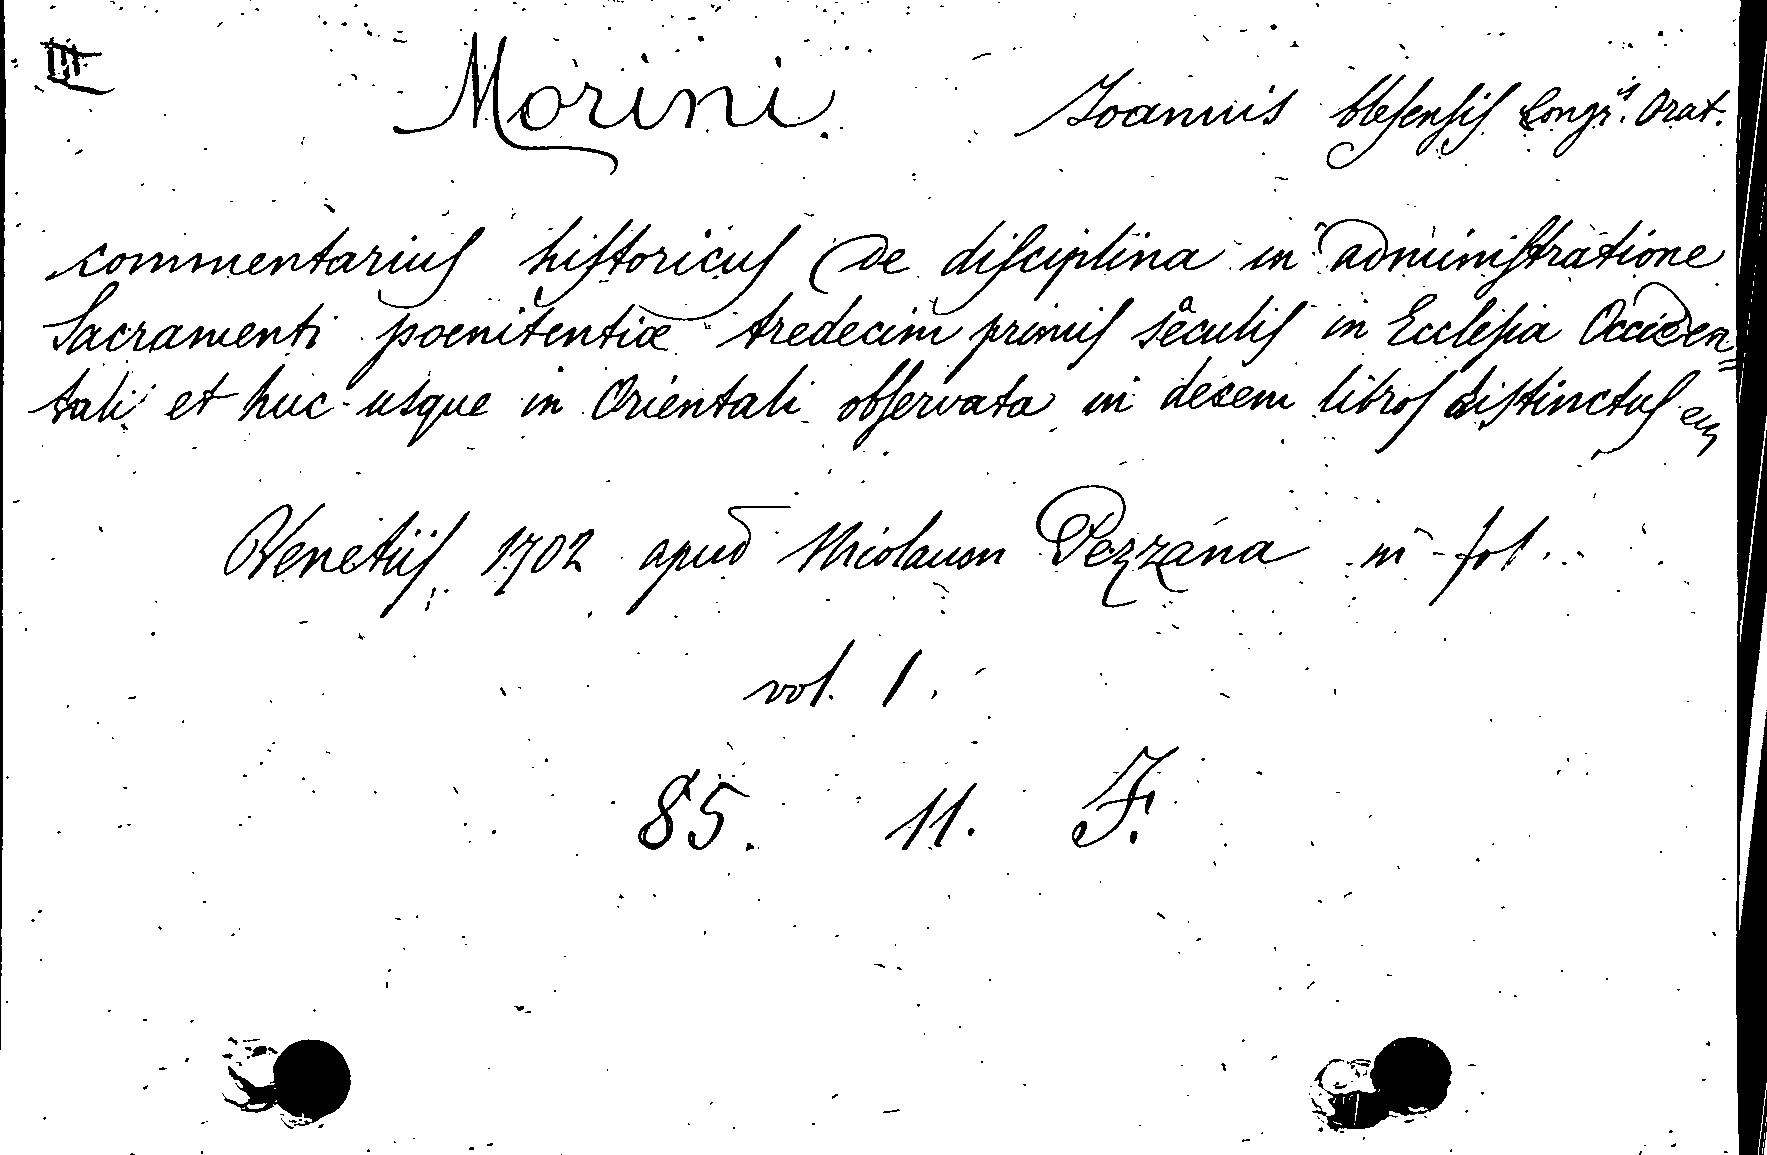 III
Morini. Joannis blesensis Congr.is Orat.
commentarius historicus de disciplina in administratione
Sacramenti poenitentiæ tredecim primis seculis in Ecclesia Occiden=
tali et huc usque in Orientali observata in decem libros distinctus
Venetiis 1702 apud Nicolaum Pezzana in fol.
vol. 1.
85. 11. F.